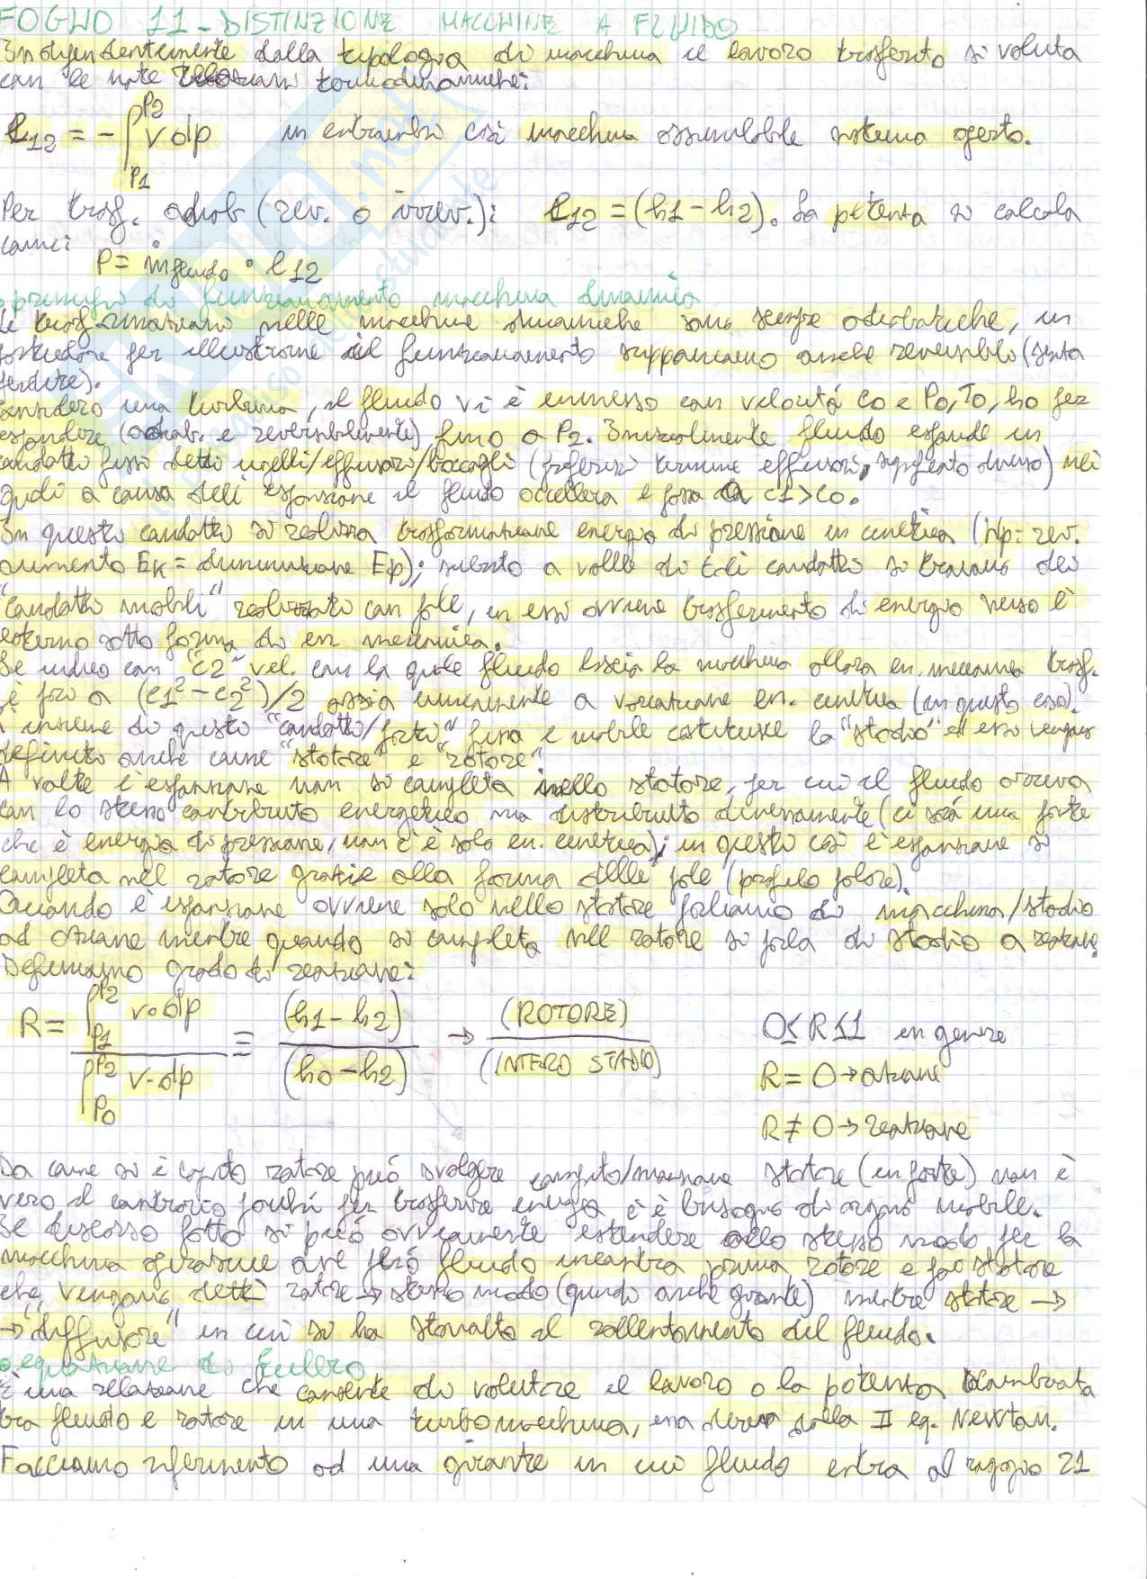 FOGLIO 11 - DISTINZIONE MACCHINE A FLUIDO
Indipendentemente dalla tipologia di macchina il lavoro trasferito si valuta
con le note relazioni termodinamiche:
l12 = - ∫ p1 p2 v dp in entrambi casi macchina assimilabile sistema aperto.
Per trasf. adiab (rev. o irrev.): l12 = (h1 - h2). La potenza si calcola
come:
P = ṁfluido · l12
principio di funzionamento macchina dinamica
Le trasformazioni nelle macchine dinamiche sono sempre adiabatiche, in
per illustrarne il funzionamento supponiamo anche reversibile (senza
perdite).
Considero una turbina, il fluido vi è immesso con velocità c0 e P0, T0, h0 per
espandere (adiab. e reversibilmente) fino a P2. Inizialmente fluido espande in
condotti fissi detti ugelli/effusori/boccagli (preferisco termine effusori, significato diverso) nei
quali a causa dell'espansione il fluido accellera e passa a c1>c0.
In questo condotto si realizza trasformazione energia di pressione in cinetica (Hp: rev.
aumento Ek = diminuzione Ep); subito a valle di tali condotti si trovano dei
"condotti mobili" realizzati con pale, in essi avviene trasferimento di energia verso l'
esterno sotto forma di en meccanica.
Se indico con "c2" vel. con la quale fluido lascia la macchina allora en. meccanica trasf.
è pari a (c1² - c2²)/2 ossia unicamente a variazione en. cinetica (in questo caso).
L'insieme di questo "condotto/parte" fissa e mobile costituisce lo "stadio" ed essi vengono
definiti anche come "statore" e "rotore".
A volte l'espansione non si completa nello statore, per cui il fluido arriva
con lo stesso contributo energetico ma distribuito diversamente (ci sarà una parte
che è energia di pressione, non c'è solo en. cinetica); in questo caso l'espansione si
completa nel rotore grazie alla forma delle pale (profilo palare).
Quando l'espansione avviene solo nello statore parliamo di macchina/stadio
ad azione mentre quando si completa nel rotore si parla di stadio a reazione.
Definiamo grado di reazione:
R = ∫ p1 p2 v·dp / ∫ p0 p2 v·dp = (h1 - h2) / (h0 - h2) → (ROTORE) / (INTERO STADIO) 0 ≤ R ≤ 1 in genere
R = 0 → azione
R ≠ 0 → reazione
Da come si è capito rotore può svolgere compito/mansione statore (in parte) non è
vero il contrario poichè per trasferire energia c'è bisogno di organo mobile.
Il discorso fatto si può ovviamente estendere allo stesso modo per la
macchina operatrice ove però fluido incontra prima rotore e poi statore
che vengono detti rotore → stesso modo (quindi anche girante) mentre statore →
→ "diffusore" in cui si ha stavolta il rallentamento del fluido.
equazione di Eulero
È una relazione che consente di valutare il lavoro o la potenza scambiata
tra fluido e rotore in una turbomacchina, essa deriva dalla II eq. Newton.
Facciamo riferimento ad una girante in cui fluido entra al raggio r1